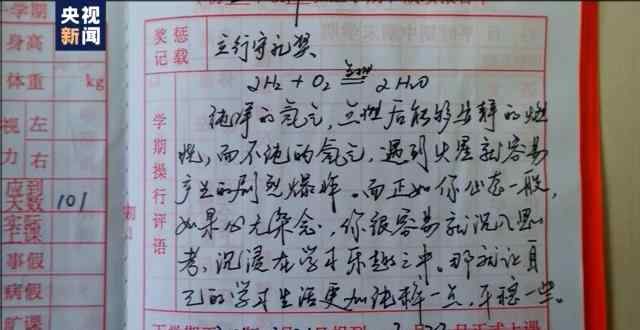 央视新闻
学期
身高
体重 kg
视力 左
右
应到天数 101
实际上课
事假
病假
旷课
奖惩记载
立行守礼奖
学期操行评语
2H₂ + O₂ 点燃═ 2H₂O
纯净的氢气，点燃后能够安静的燃
烧，而不纯的氢气，遇到火星就容易
产生的剧烈爆炸。而正如你心态一般，
如果心无杂念，你很容易就沉入思
考，沉浸在学习乐趣之中。那就让自
己的学习生活更加纯粹一点，平稳一些。